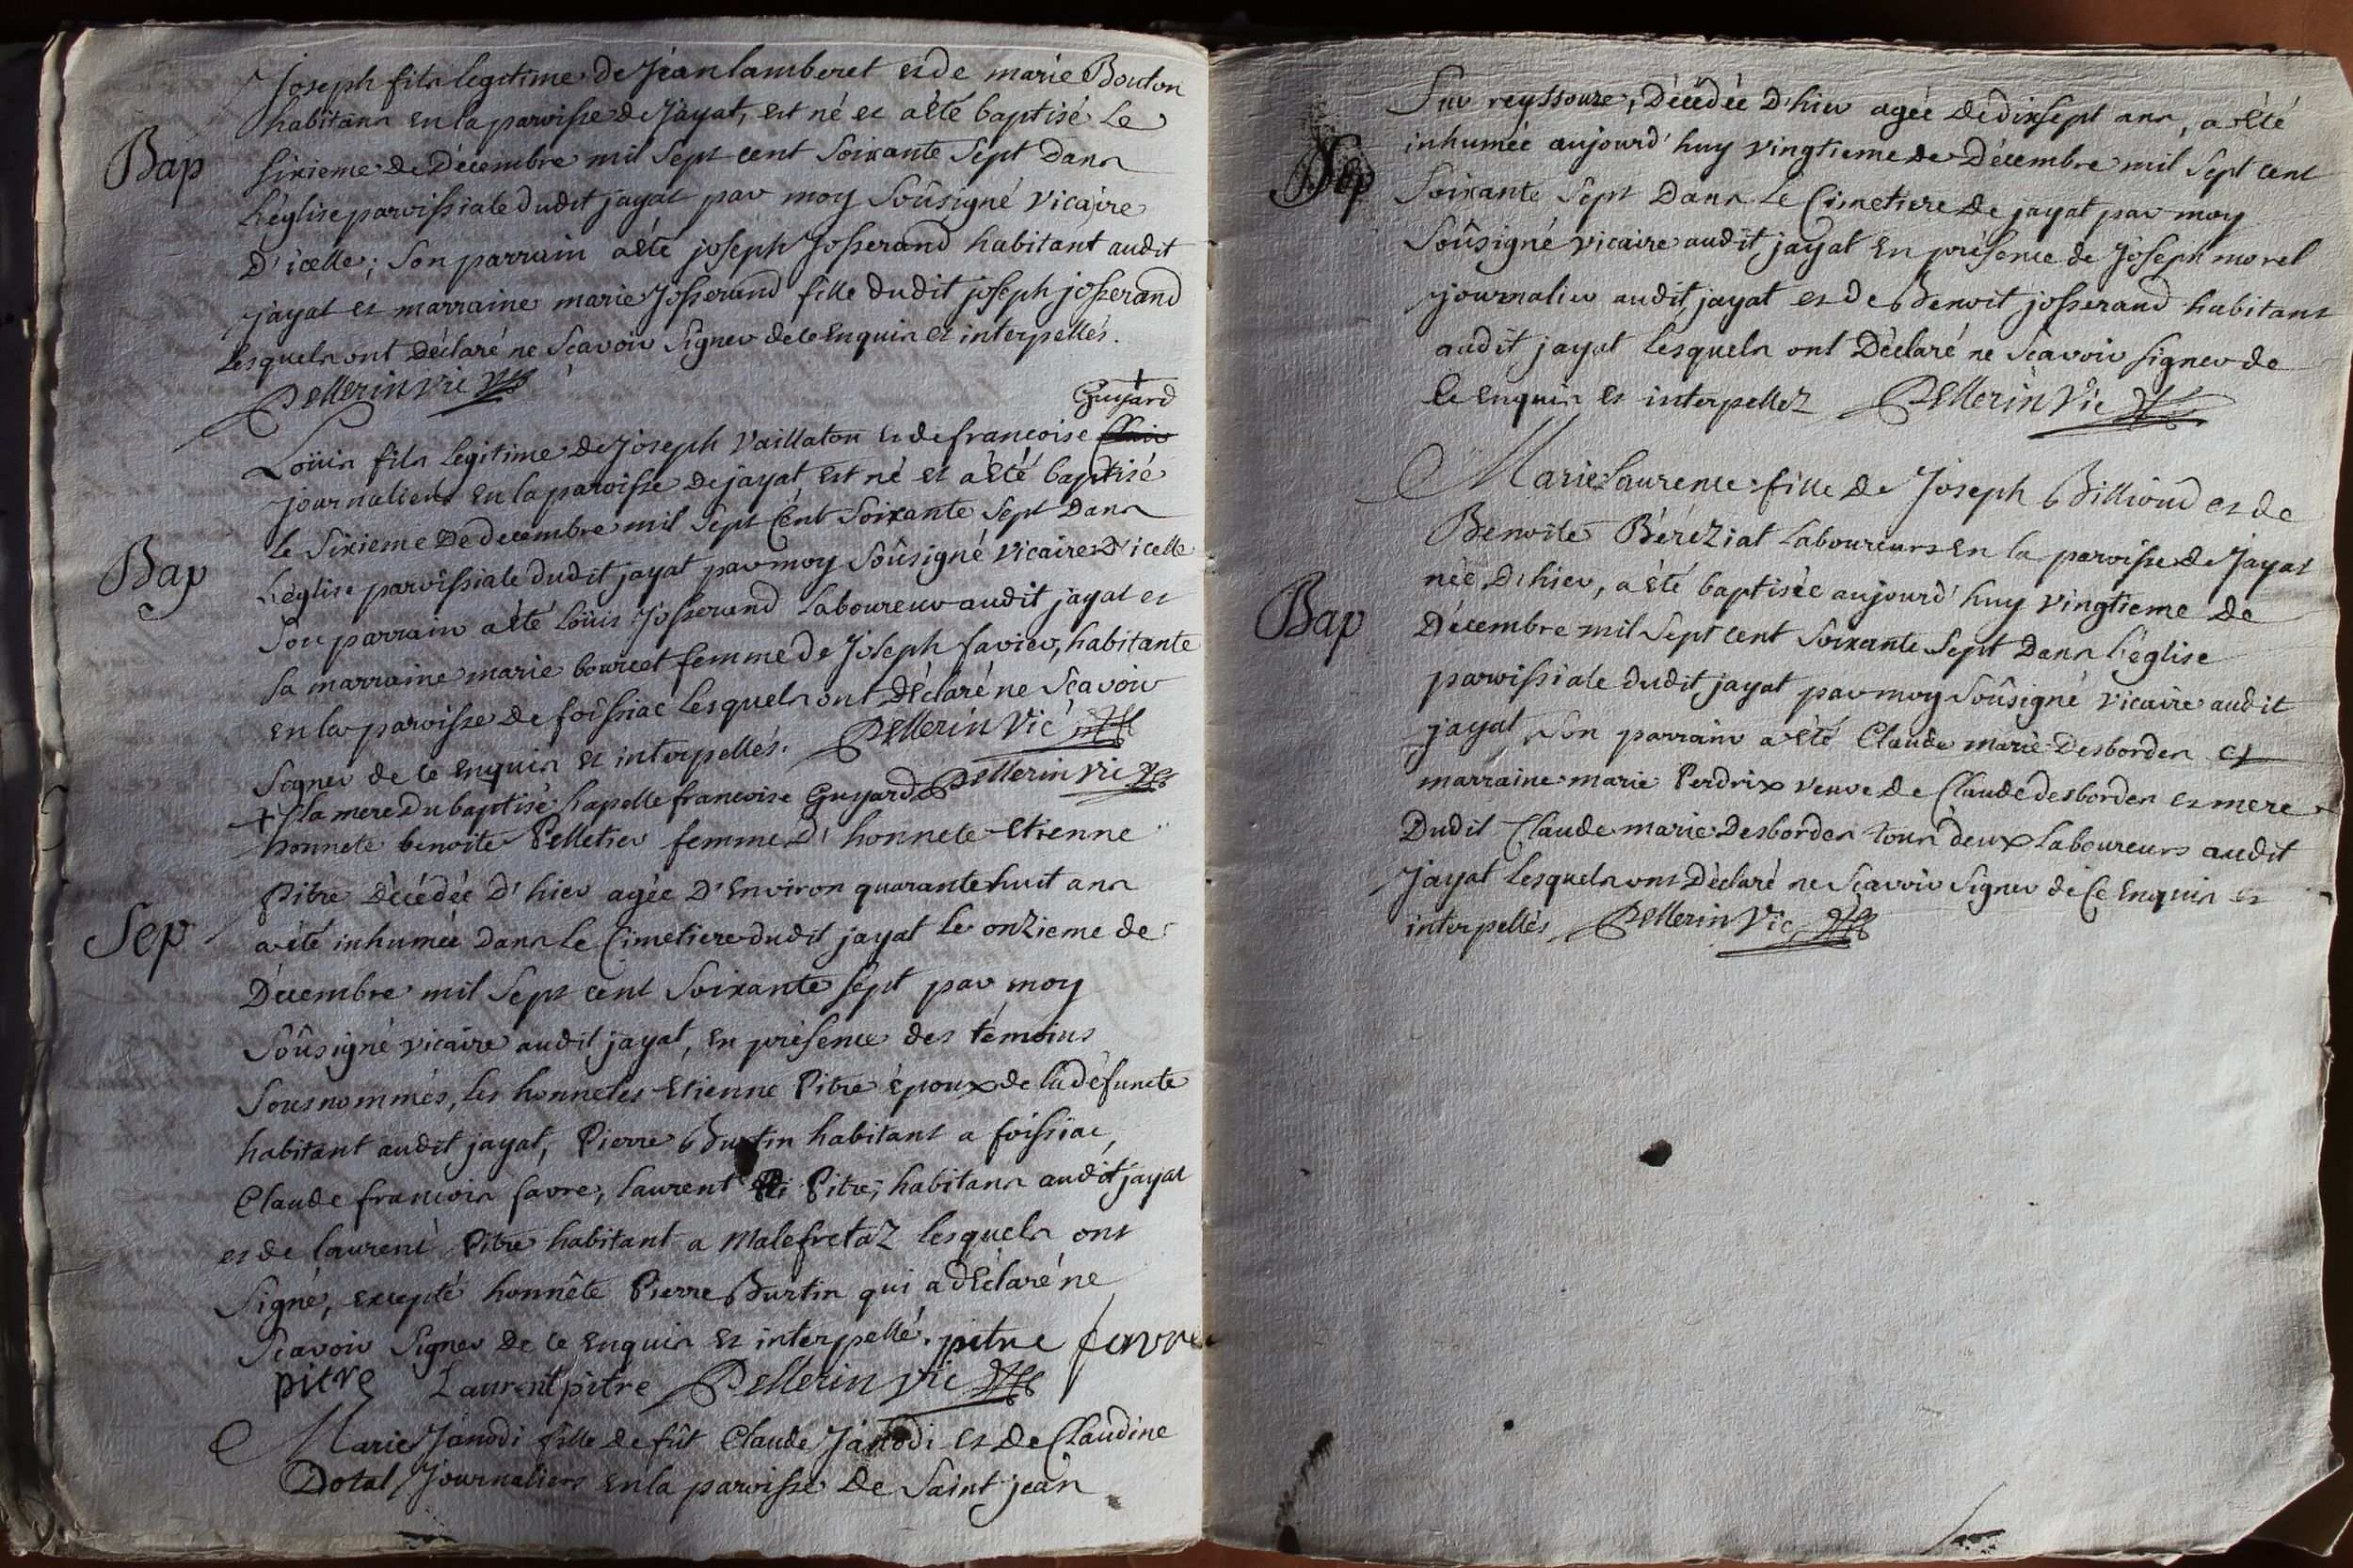 Joseph fils legitime de Jean lamberet et de marie Bouton
habitans en la paroisse de Jayat, est né et a été baptisé Le
Bap
sixieme de Décembre mil sept cent soixante sept Dans
L'église paroissiale dudit jayat par moy soûsigné vicaire
D'icelle; son parrain a été joseph Josserand habitant audit
jayat et marraine marie Josserand fille dudit joseph josserand
lesquels ont Déclaré ne sçavoir signer de ce enquis et interpellés.
Pellerin vic
Guyard
Loüis fils legitime de Joseph Vaillaton et de francoise
journaliers en la paroisse de jayat est né et a été baptisé
le sixieme de decembre mil sept cent soixante sept Dans
Bap
L'église paroissiale dudit jayat par moy soûsigné vicaire D'icelle
son parrain a été Loüis Josserand Laboureur audit jayat et
sa marraine marie bourcet femme de Joseph favier, habitante
en la paroisse de foissiac lesquels ont Déclaré ne sçavoir
signer de ce enquis et interpellés. Pellerin Vic
+ la mere du baptisé sapelle francoise Guyard Pellerin vic
honnete benoite Pelletier femme D'honnete Etienne
Pitre Décédée D'hier agée D'Environ quarante huit ans
Sep
a été inhumée Dans Le Cimetiere dudit jayat le onzieme de
Décembre mil sept cent soixante sept par moy
soûsigné vicaire audit jayat, en présence des témoins
sousnommés, les honnetes Etienne Pitre époux de la défuncte
habitant audit jayat, Pierre Burtin habitant a foissiac,
Claude francois favre, laurent Pitre, habitans audit jayat
et de laurent Pitre habitant a Malefretaz lesquels ont
signé, excepté honnête Pierre Burtin qui a déclaré ne
sçavoir signer de ce enquis et interpellé. pitre favre
pitre Laurent pitre Pellerin vic
Marie Janodi fille de fût Claude Janodi et de Claudine
Dotal Journaliers en la paroisse de Saint jean
Sur reyssouze, Décédée D'hier agée de dixsept ans, a été
inhumée aujourd'huy vingtieme de Décembre mil sept cent
Sep
soixante sept Dans Le Cimetiere de jayat par moy
soûsigné vicaire audit jayat en présence de Joseph morel
journalier audit jayat et de Benoit josserand habitant
audit jayat lesquels ont Déclaré ne sçavoir signer de
Ce enquis et interpellez Pellerin Vic
Marie Laurence fille de Joseph Billioud et de
Benoite Béréziat Laboureurs en la paroisse de Jayat
née D'hier, a été baptisée aujourd'huy vingtieme de
Bap
Décembre mil sept cent soixante sept Dans l'église
paroissiale dudit jayat par moy soûsigné vicaire audit
jayat, son parrain a été Claude marie Desbordes et
marraine marie Perdrix veuve de Claude desbordes et mere
Dudit Claude marie Desbordes tous deux Laboureurs audit
Jayat lesquels ont Déclaré ne sçavoir signer de Ce enquis et
interpellés Pellerin Vic